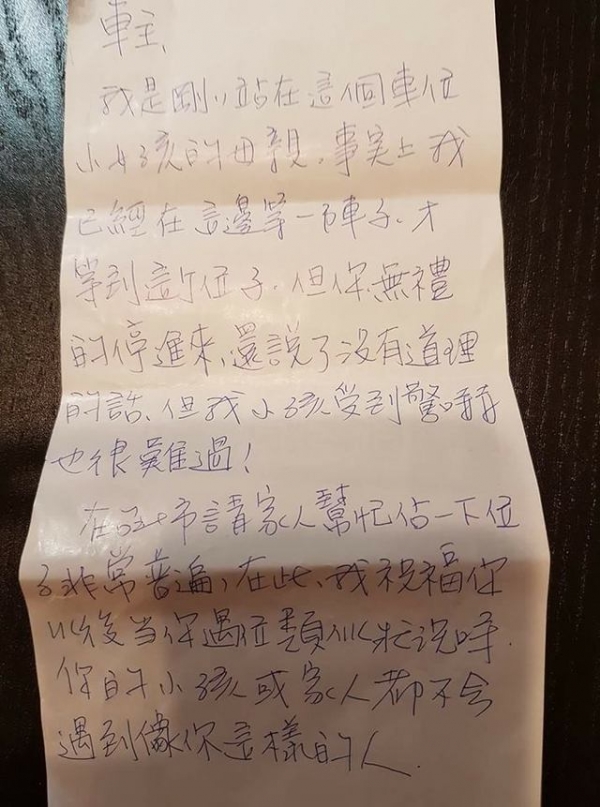 車主、
我是剛剛站在這個車位
小女孩的母親,事実上我
已經在這邊等一陣子、才
等到這个位子,但你無禮
的停進來,還說了没有道理
的話、但我小孩受到驚嚇
也很難過!
在台北市請家人幫忙佔一下位
子非常普遍,在此、我祝福你
以後当你遇位類似狀況時.
你的小孩或家人都不会
遇到像你這樣的人.